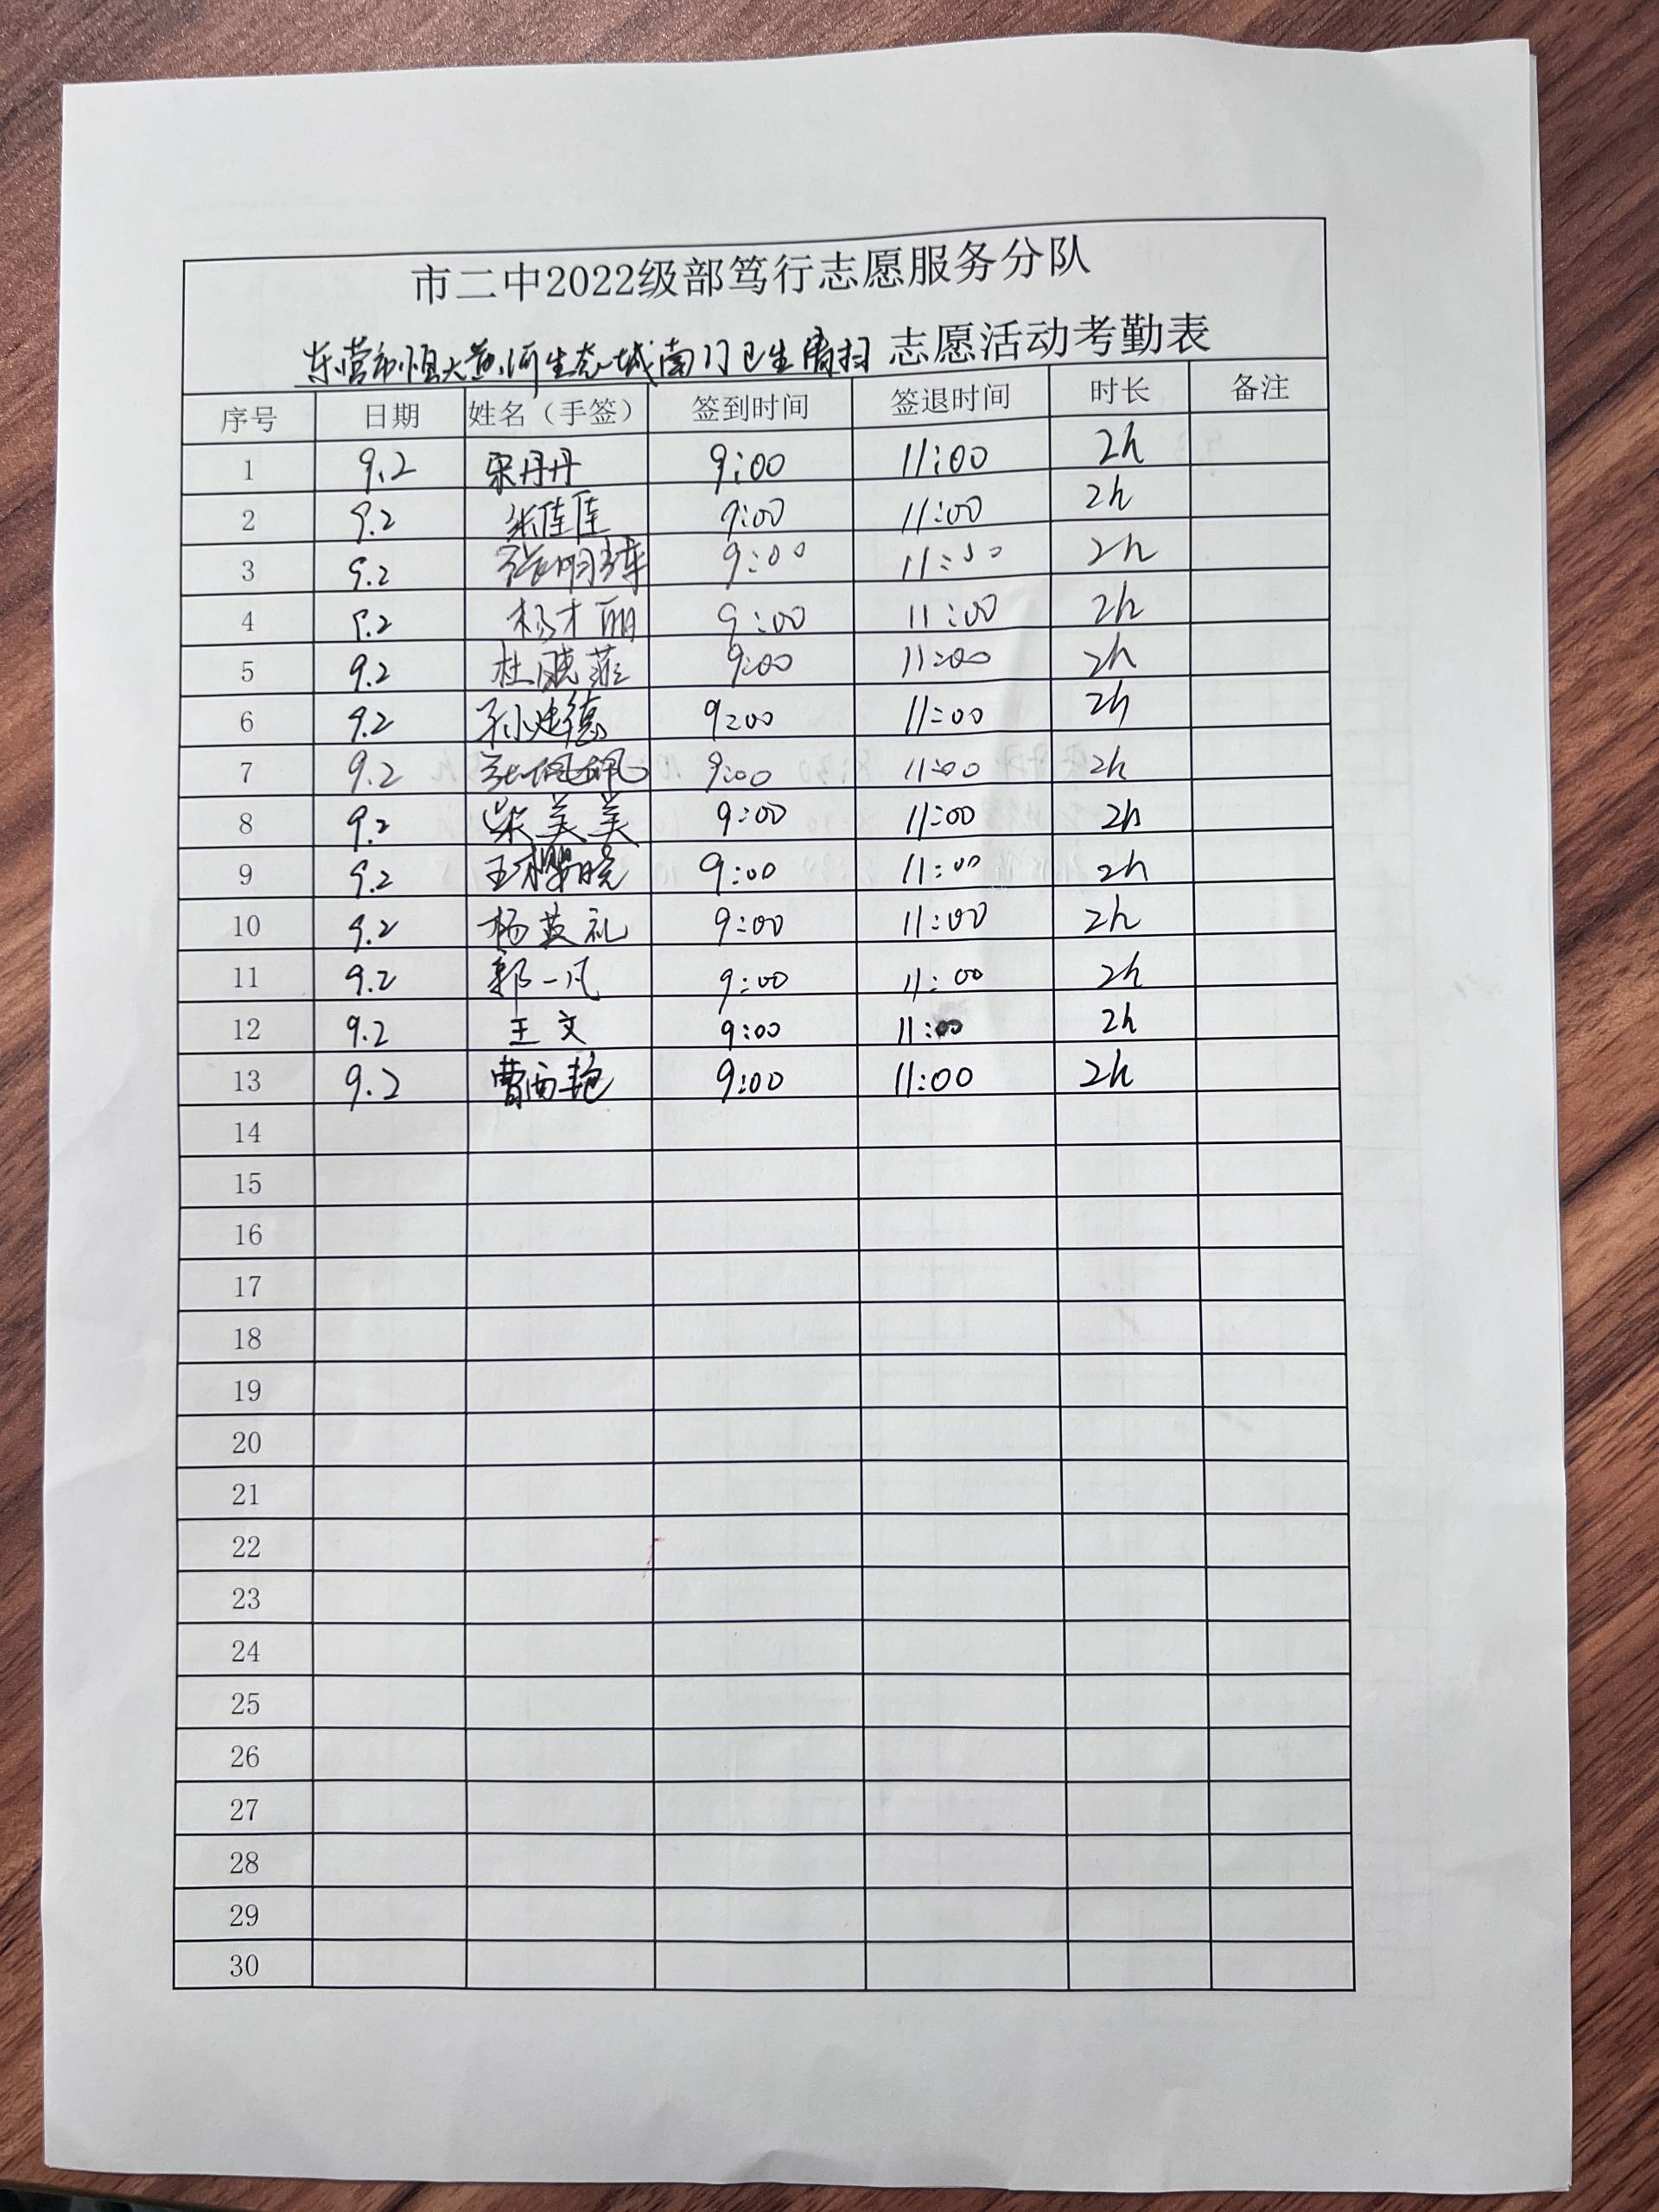 市二中2022级部笃行志愿服务分队
东营市恒大黄河生态城南门卫生清扫 志愿活动考勤表
序号 日期 姓名（手签） 签到时间 签退时间 时长 备注
1 9.2 宋丹丹 9:00 11:00 2h
2 9.2 张佳佳 9:00 11:00 2h
3 9.2 9:00 11:00 2h
4 9.2 杨才丽 9:00 11:00 2h
5 9.2 杜晓菲 9:00 11:00 2h
6 9.2 孙建德 9:00 11:00 2h
7 9.2 张佩佩 9:00 11:00 2h
8 9.2 柴美美 9:00 11:00 2h
9 9.2 王樱晓 9:00 11:00 2h
10 9.2 杨英礼 9:00 11:00 2h
11 9.2 郭一凡 9:00 11:00 2h
12 9.2 王文 9:00 11:00 2h
13 9.2 曹西艳 9:00 11:00 2h
14
15
16
17
18
19
20
21
22
23
24
25
26
27
28
29
30